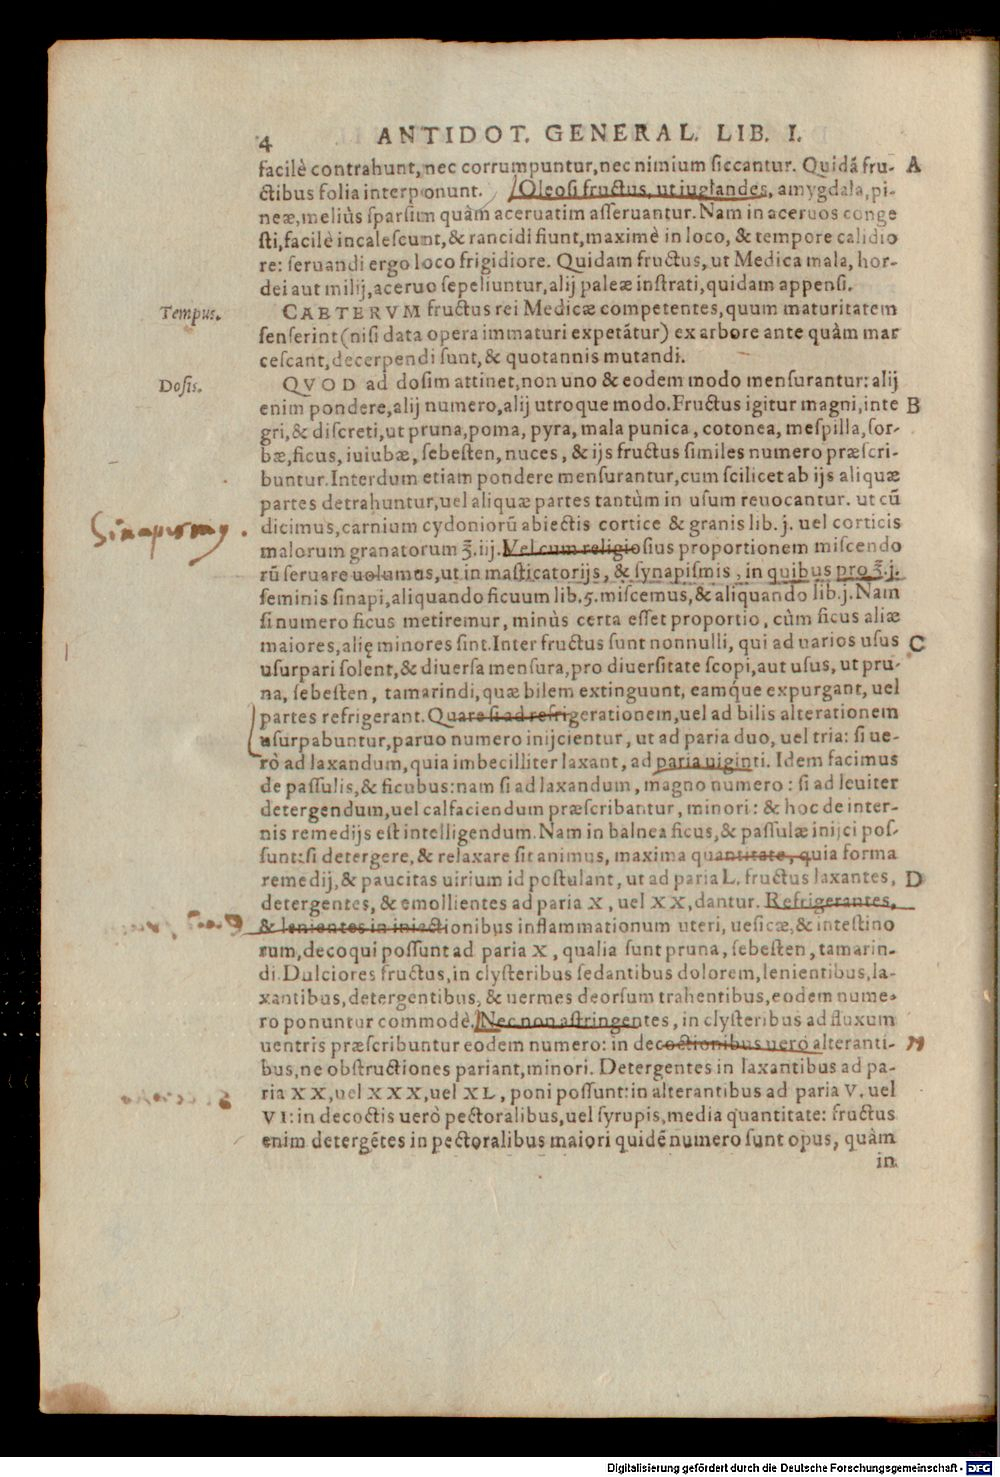 4 ANTIDOT. GENERAL. LIB. I.
facilè contrahunt, nec corrumpuntur, nec nimium siccantur. Quidã fru- A
ctibus folia interponunt. Oleosi fructus, ut iuglandes, amygdala, pi-
neæ, meliùs sparsim quàm aceruatim asseruantur. Nam in aceruos conge
sti, facilè incalescunt, & rancidi fiunt, maximè in loco, & tempore calidio
re: seruandi ergo loco frigidiore. Quidam fructus, ut Medica mala, hor-
dei aut milij, aceruo sepeliuntur, alij paleæ instrati, quidam appensi.
Tempus. CAETERVM fructus rei Medicæ competentes, quum maturitatem
senserint (nisi data opera immaturi expetãtur) ex arbore ante quàm mar
cescant, decerpendi sunt, & quotannis mutandi.
Dosis. QVOD ad dosim attinet, non uno & eodem modo mensurantur: alij
enim pondere, alij numero, alij utroque modo. Fructus igitur magni, inte B
gri, & discreti, ut pruna, poma, pyra, mala punica, cotonea, mespilla, sor-
bæ, ficus, iuiubæ, sebesten, nuces, & ijs fructus similes numero præscri-
buntur. Interdum etiam pondere mensurantur, cum scilicet ab ijs aliquæ
partes detrahuntur, uel aliquæ partes tantùm in usum reuocantur. ut cũ
dicimus, carnium cydoniorũ abiectis cortice & granis lib. j. uel corticis
malorum granatorum ʒ̃. iij. Vel cum religiosius proportionem miscendo
rũ seruare uolumus, ut in masticatorijs, & synapismis, in quibus pro ʒ̃. j.
seminis sinapi, aliquando ficuum lib. 5. miscemus, & aliquando lib. j. Nam
si numero ficus metiremur, minùs certa esset proportio, cùm ficus aliæ
maiores, alię minores sint. Inter fructus sunt nonnulli, qui ad uarios usus C
usurpari solent, & diuersa mensura, pro diuersitate scopi, aut usus, ut pru-
na, sebesten, tamarindi, quæ bilem extinguunt, eamque expurgant, uel
partes refrigerant. Quare si ad refrigerationem, uel ad bilis alterationem
usurpabuntur, paruo numero inijcientur, ut ad paria duo, uel tria: si ue-
rò ad laxandum, quia imbecilliter laxant, ad paria uiginti. Idem facimus
de passulis, & ficubus: nam si ad laxandum, magno numero: si ad leuiter
detergendum, uel calfaciendum præscribantur, minori: & hoc de inter-
nis remedijs est intelligendum. Nam in balnea ficus, & passulæ inijci pos-
sunt: si detergere, & relaxare sit animus, maxima quantitate, quia forma
remedij, & paucitas uirium id postulant, ut ad paria L. fructus laxantes, D
detergentes, & emollientes ad paria X, uel XX, dantur. Refrigerantes,
& lenientes in iniectionibus inflammationum uteri, uesicæ, & intestino
rum, decoqui possunt ad paria X, qualia sunt pruna, sebesten, tamarin-
di. Dulciores fructus, in clysteribus sedantibus dolorem, lenientibus, la-
xantibus, detergentibus, & uermes deorsum trahentibus, eodem nume-
ro ponuntur commodè. Nec non astringentes, in clysteribus ad fluxum
uentris præscribuntur eodem numero: in decoctionibus uerò alteranti-
bus, ne obstructiones pariant, minori. Detergentes in laxantibus ad pa-
ria XX, uel XXX, uel XL, poni possunt: in alterantibus ad paria V. uel
VI: in decoctis uerò pectoralibus, uel syrupis, media quantitate: fructus
enim detergẽtes in pectoralibus maiori quidẽ numero sunt opus, quàm
in
Digitalisierung gefördert durch die Deutsche Forschungsgemeinschaft - DFG